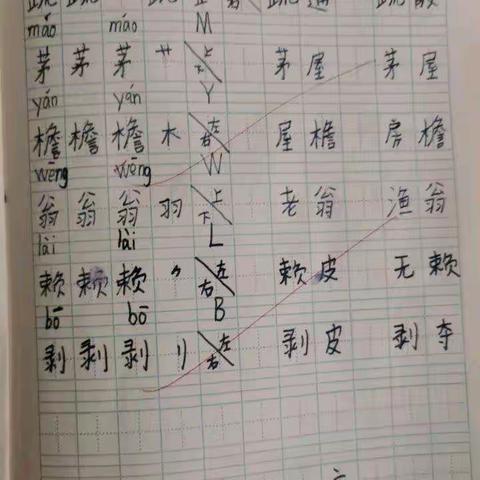 máo máo M
茅 茅 茅 艹 上 下 茅 屋 茅 屋
yán yán Y
檐 檐 檐 木 左 右 屋 檐 房 檐
wēng wēng W
翁 翁 翁 羽 上 下 老 翁 渔 翁
lài lài L
赖 赖 赖 ⺈ 左 右 赖 皮 无 赖
bō bō B
剥 剥 剥 刂 左 右 剥 皮 剥 夺